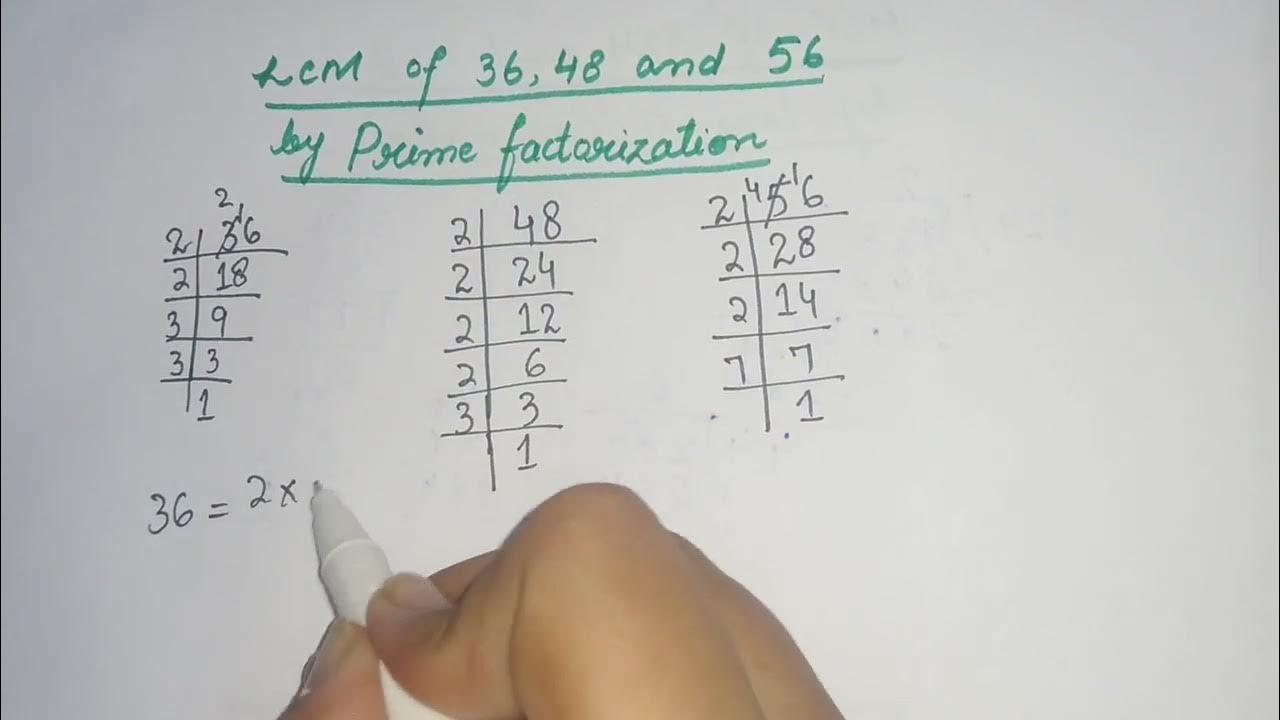 LCM of 36, 48 and 56
by Prime factorization
2 36
2 18
3 9
3 3
1
2 48
2 24
2 12
2 6
3 3
1
2 56
2 28
2 14
7 7
1
36 = 2 ×